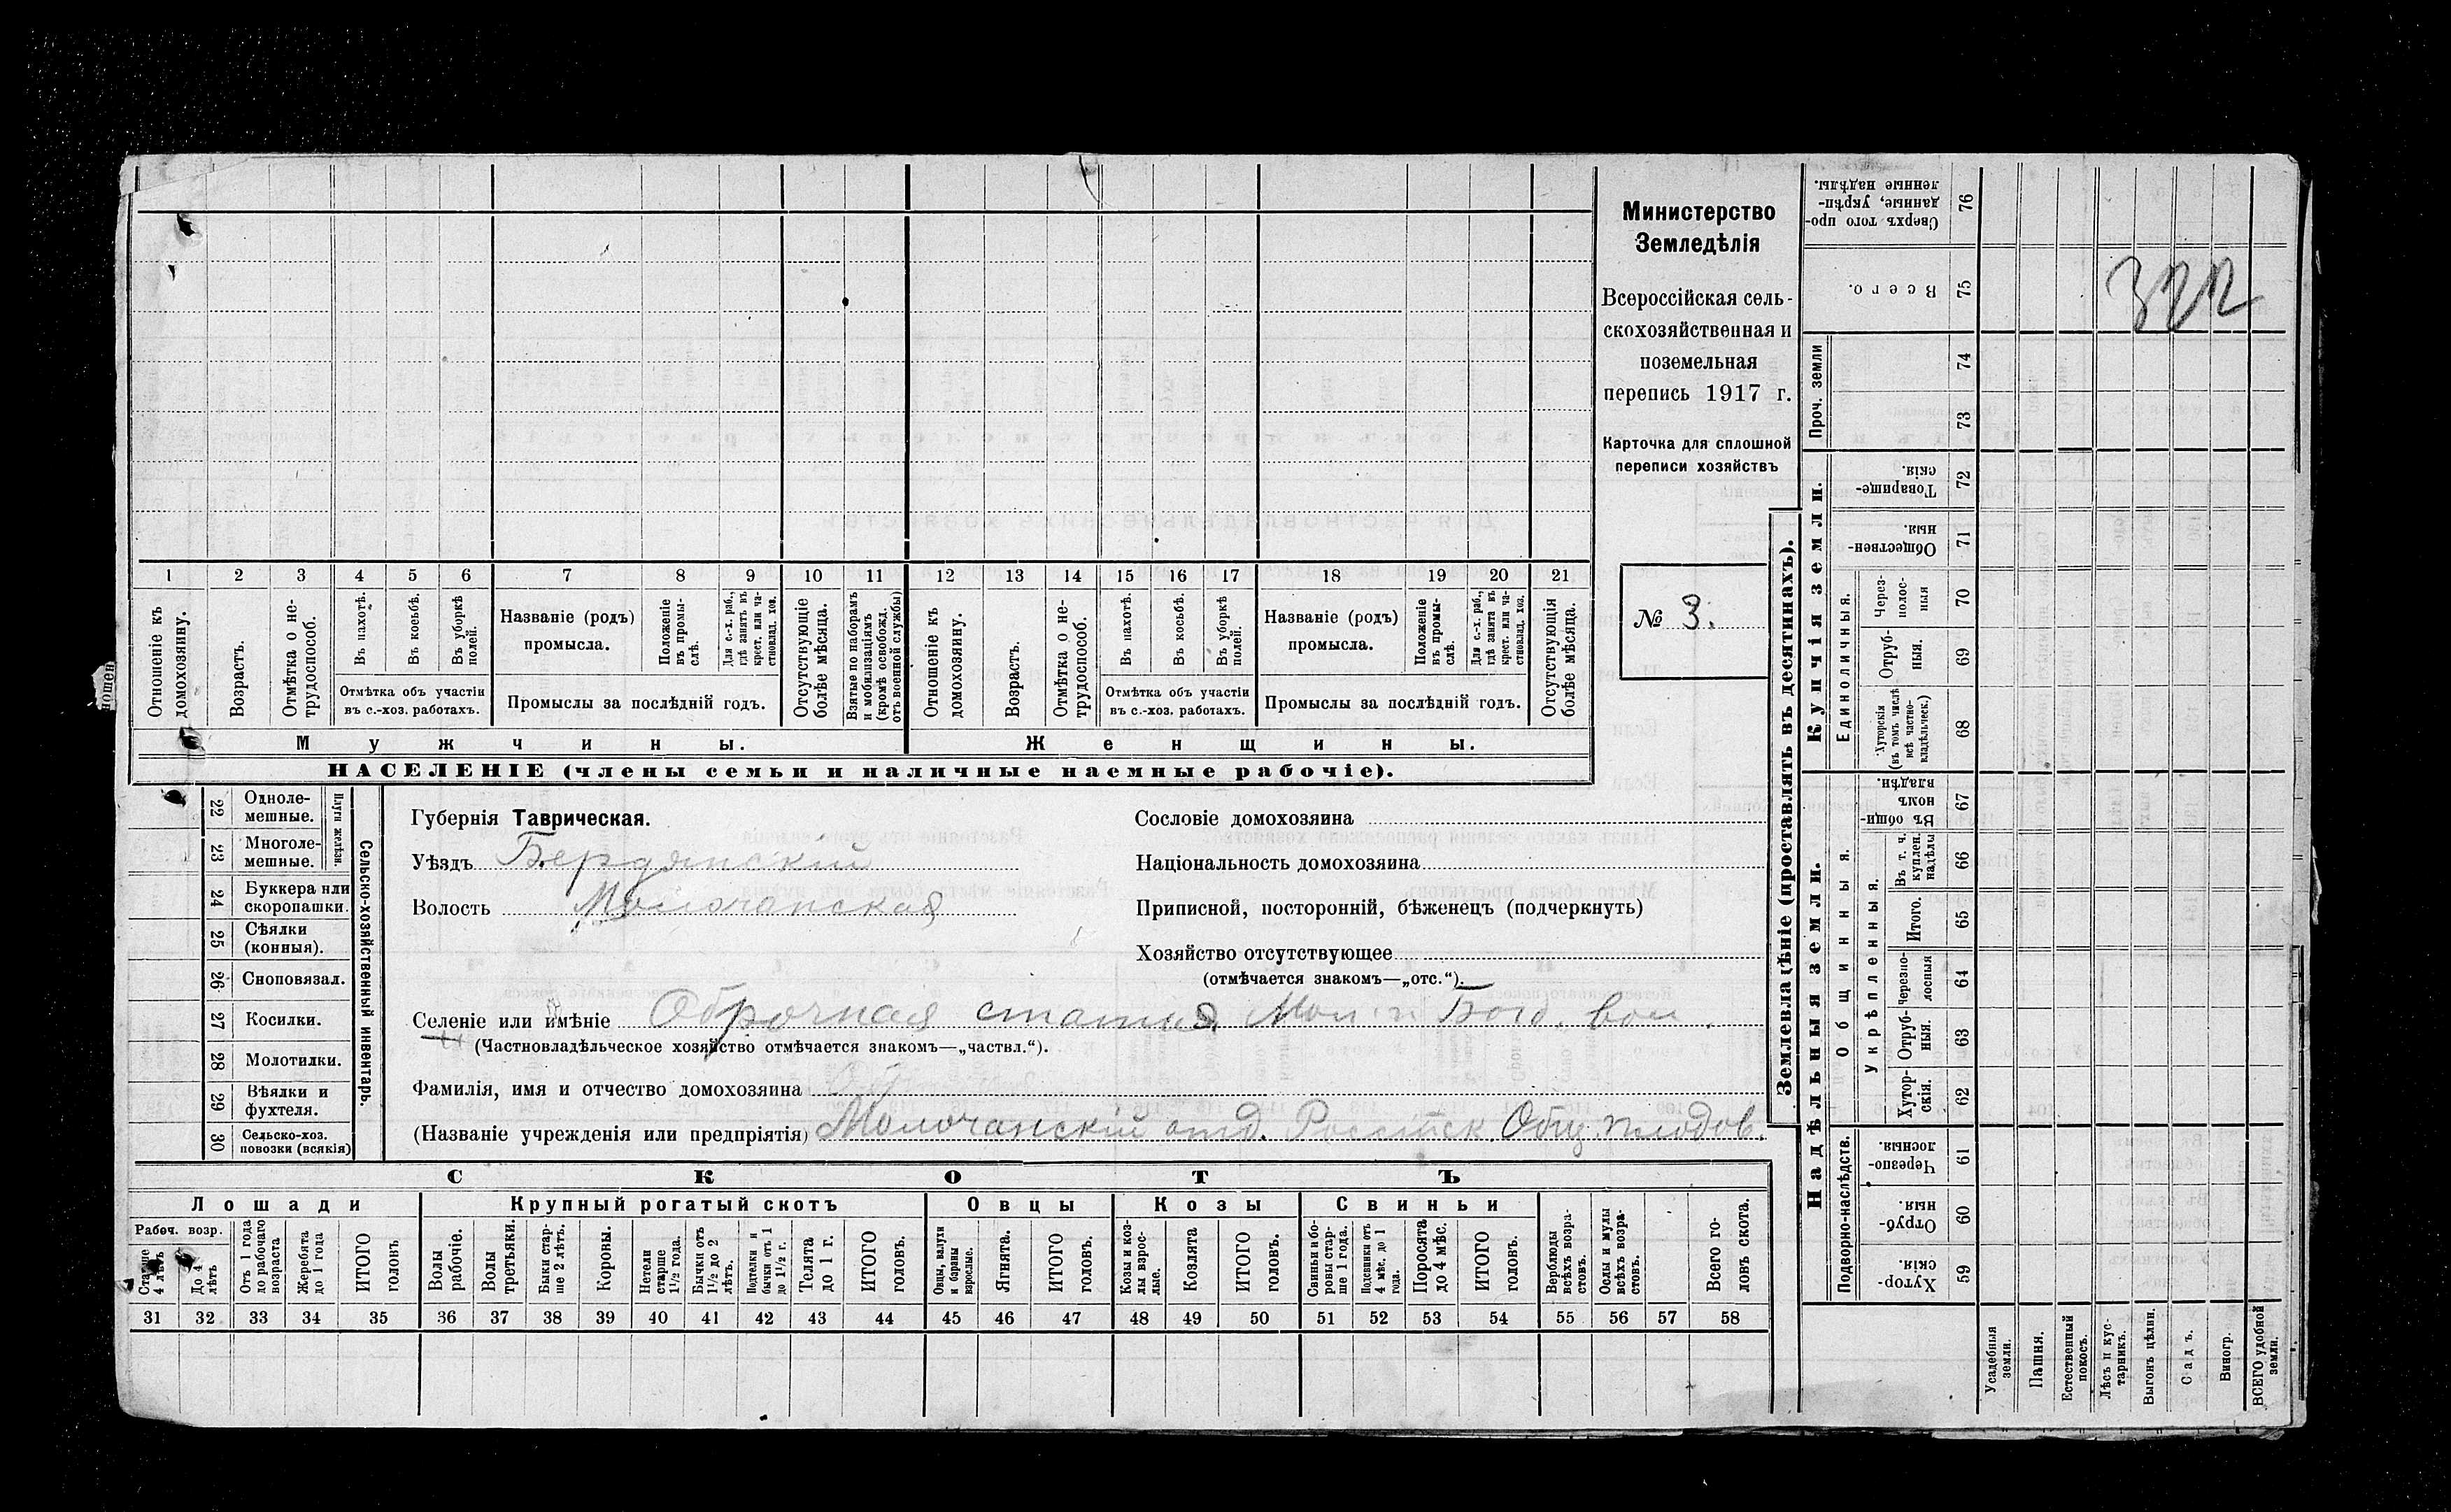 Министерство
Земледѣлія
Всероссійская сель-
скохозяйственная и
поземельная
перепись 1917 г.
Карточка для сплошной
переписи хозяйствъ
№ 3.
322
1 2 3 4 5 6 7 8 9 10 11 12 13 14 15 16 17 18 19 20 21
Отношеніе къ домохозяину.
Возрастъ.
Отмѣтка о не-трудоспособ.
Въ пахотѣ.
Въ косьбѣ.
Въ уборкѣ полей.
Отмѣтка объ участіи
въ с.-хоз. работахъ.
Названіе (родъ)
промысла.
Положеніе въ промы-слѣ.
Для с.-х. раб., гдѣ занятъ въ крест. или ча-стновлад. хоз.
Промыслы за послѣдній годъ.
Отсутствующіе болѣе мѣсяца.
Взятые по наборамъ и мобилизаціямъ (кромѣ освобожд. отъ военной службы)
Отношеніе къ домохозяину.
Возрастъ.
Отмѣтка о не-трудоспособ.
Въ пахотѣ.
Въ косьбѣ.
Въ уборкѣ полей.
Отмѣтка объ участіи
въ с.-хоз. работахъ.
Названіе (родъ)
промысла.
Положеніе въ промы-слѣ.
Для с.-х. раб., гдѣ занята въ крест. или ча-стновлад. хоз.
Промыслы за послѣдній годъ.
Отсутствующія болѣе мѣсяца.
Мужчины.
Женщины.
НАСЕЛЕНІЕ (члены семьи и наличные наемные рабочіе).
22 Одноле-мешные.
23 Многоле-мешные.
Плуги желѣзн.
24 Буккера или скоропашки.
25 Сѣялки (конныя).
26 Сноповязал.
27 Косилки.
28 Молотилки.
29 Вѣялки и фухтеля.
30 Сельско-хоз. повозки (всякія)
Сельско-хозяйственный инвентарь.
Губернія Таврическая.
Уѣздъ Бердянскій
Волость Молочанская
Селеніе или имѣніе Оброчная статья Мол. и Богд. вол.
(Частновладѣльческое хозяйство отмѣчается знакомъ—„частвл.“).
Фамилія, имя и отчество домохозяина
(Названіе учрежденія или предпріятія) Молочанскій отд. Россійск. Общ. плодов.
Сословіе домохозяина
Національность домохозяина
Приписной, посторонній, бѣженецъ (подчеркнуть)
Хозяйство отсутствующее
(отмѣчается знакомъ—„отс.“).
СКОТЪ
Лошади
Крупный рогатый скотъ
Овцы
Козы
Свиньи
Рабоч. возр.
Старше 4 лѣтъ
До 4 лѣтъ
Отъ 1 года до рабочаго возраста
Жеребята до 1 года
ИТОГО головъ
Волы рабочіе.
Волы третьяки.
Быки стар-ше 2 лѣтъ.
Коровы.
Нетели старше 1½ года.
Бычки отъ 1½ до 2 лѣтъ.
Подтелки и бычки отъ 1 до 1½ г.
Телята до 1 г.
ИТОГО головъ.
Овцы, валухи и бараны взрослые.
Ягнята.
ИТОГО головъ.
Козы и коз-лы взрос-лые.
Козлята
ИТОГО головъ.
Свиньи и бо-ровы стар-ше 1 года.
Подсвинки отъ 4 мѣс. до 1 года.
Поросята до 4 мѣс.
ИТОГО головъ.
Верблюды всѣхъ возра-стовъ.
Ослы и мулы всѣхъ возра-стовъ.
Всего го-ловъ скота.
31 32 33 34 35 36 37 38 39 40 41 42 43 44 45 46 47 48 49 50 51 52 53 54 55 56 57 58
Землевладѣніе (проставлять въ десятинахъ).
Сверхъ того про-данные, укрѣп-ленные надѣлы. 76
Всего. 75
Проч. земли 74
73
Купчія земли.
Товарище-скія. 72
Обществен-ныя. 71
Единоличныя.
Через-полос-ныя 70
Отруб-ныя. 69
Хуторскія (въ томъ числѣ всѣ частно-владѣльческ.) 68
Надѣльныя земли.
Общинныя.
Въ общи-номъ владѣн. 67
Укрѣпленныя.
Въ т. ч. куплен. надѣлы 66
Итого. 65
Черезпо-лосныя 64
Отруб-ныя. 63
Хутор-скія. 62
Подворно-наслѣдств.
Черезпо-лосныя. 61
Отруб-ныя. 60
Хутор-скія. 59
Усадебныя земли.
Пашня.
Естественный покосъ.
Лѣсъ и кус-тарникъ.
Выгонъ цѣлин.
Садъ.
Виногр.
ВСЕГО удобной земли.